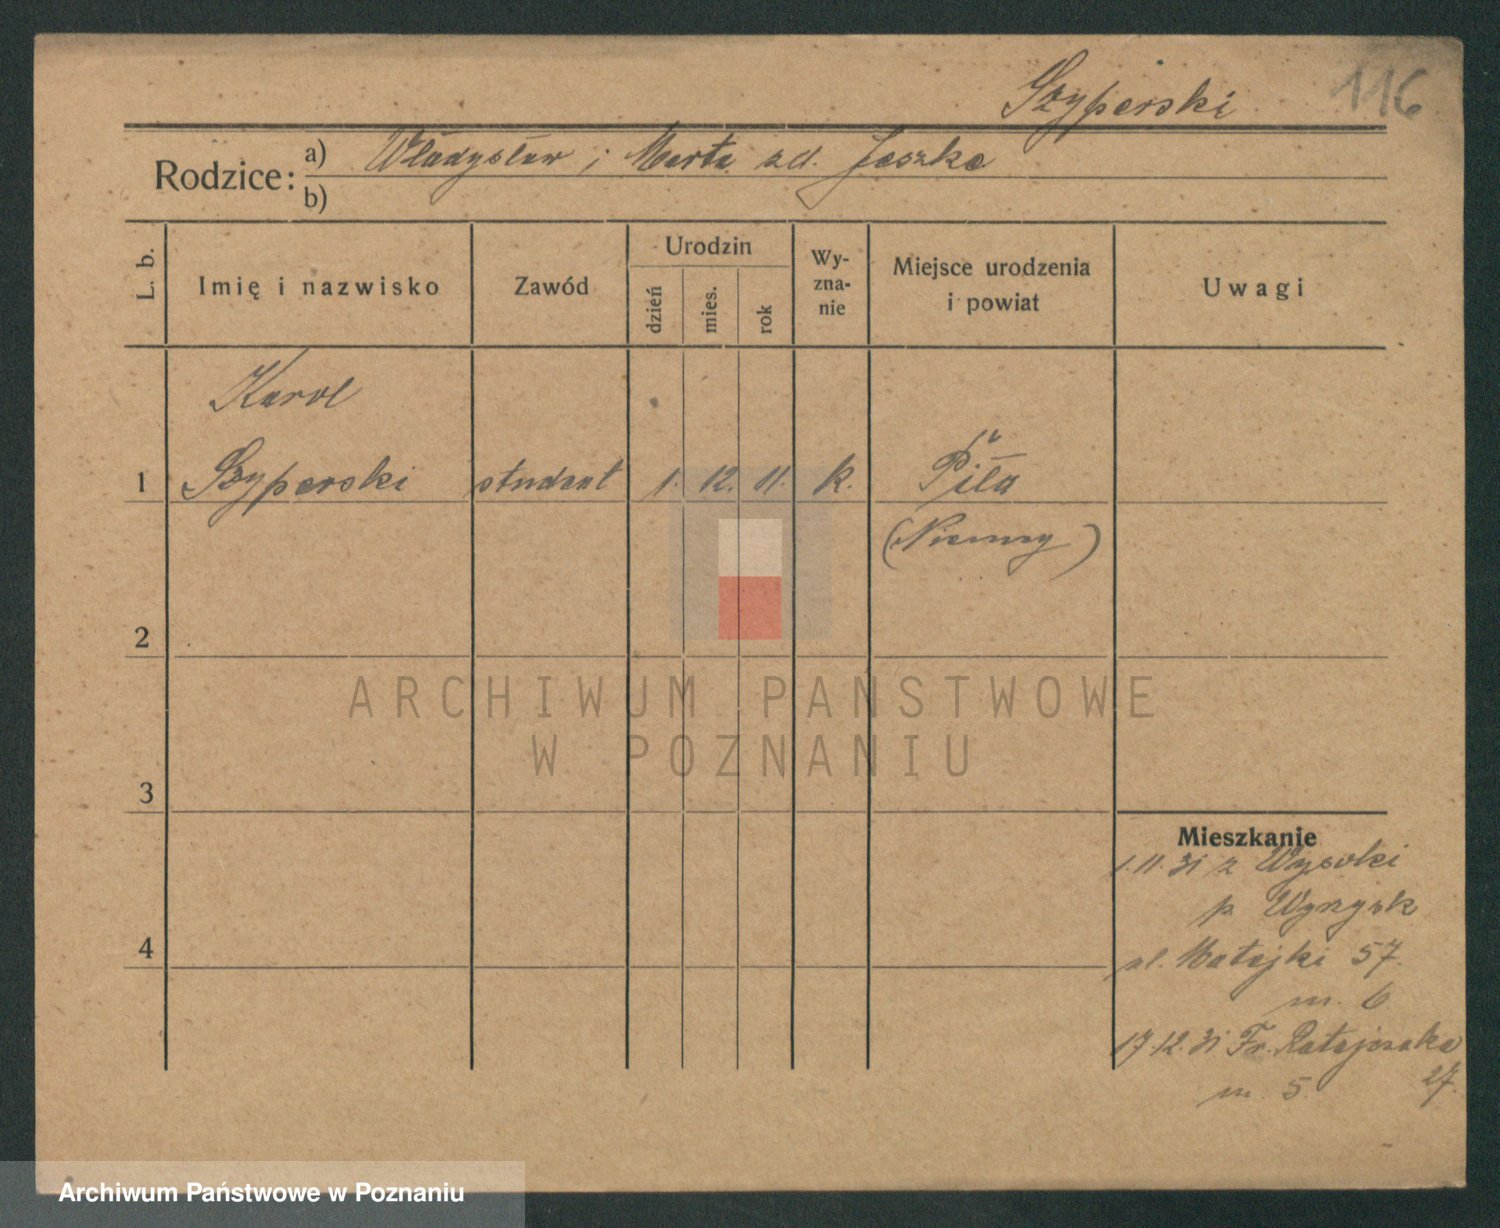 Szyperski
116
Rodzice: a) Władysław i Marta zd. Jeszke
b)
L. b.
Imię i nazwisko
Zawód
Urodzin
dzień
mies.
rok
Wy-
zna-
nie
Miejsce urodzenia
i powiat
Uwagi
Karol
1 Szyperski student 1. 12. 11. k. Piła
(Niemcy)
2
3
4
ARCHIWUM PAŃSTWOWE
W POZNANIU
Mieszkanie
1.11.31 z Wysoki
p. Wyrzysk
ul. Matejki 57.
m. 6
17.12.31 Fr. Ratajczaka
27.
m. 5
Archiwum Państwowe w Poznaniu